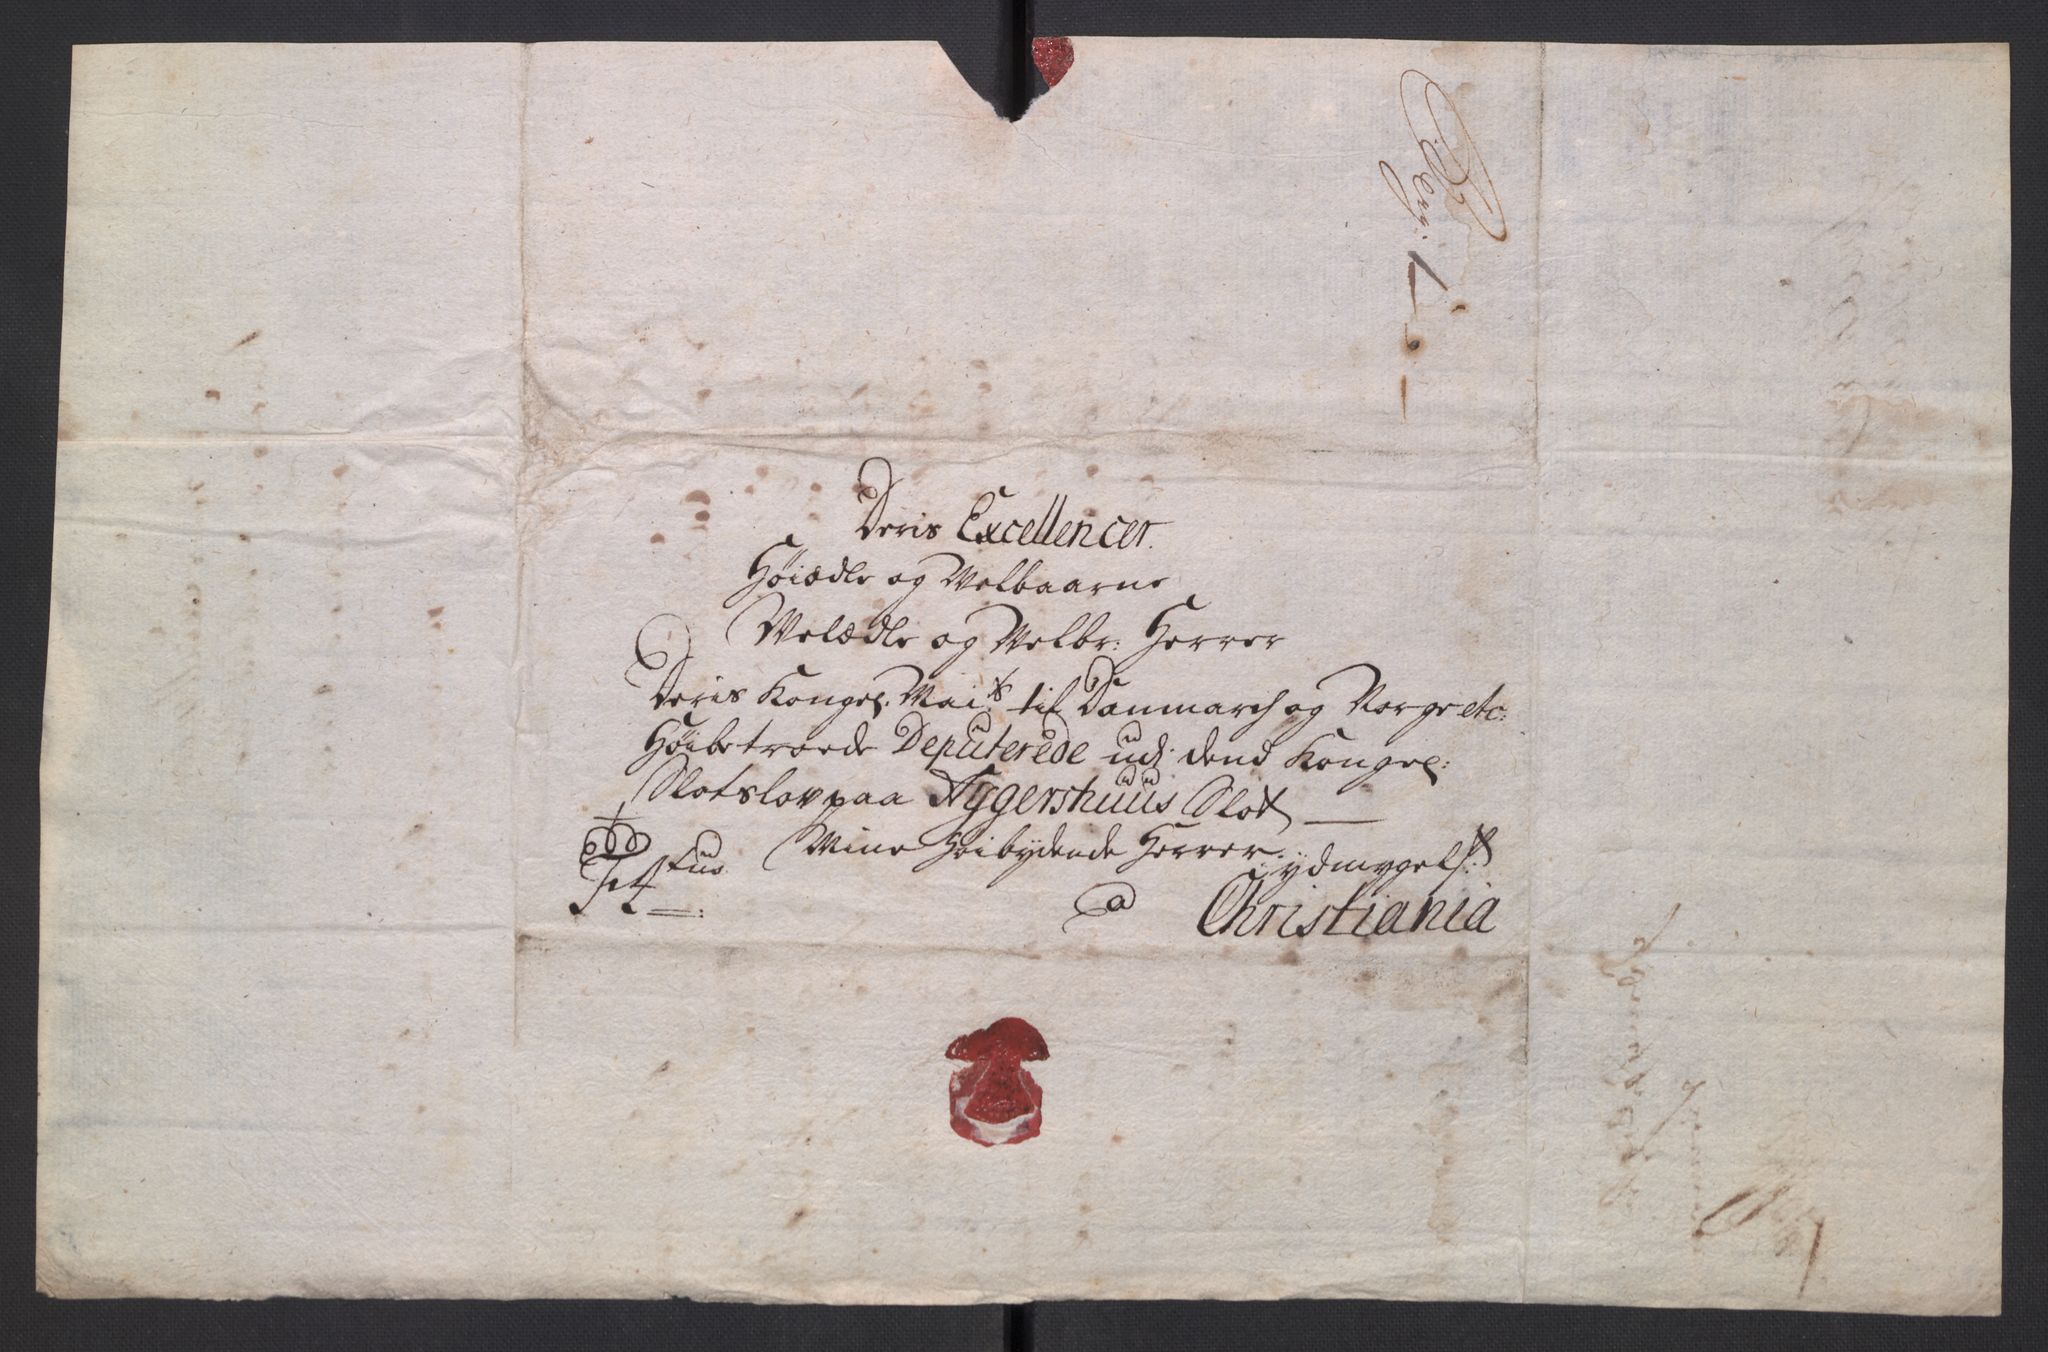 Deris Excellencer.
Høiædle og Velbaarne
Velædle og Velbr: Herrer
Deris Kongel. Mai:ts til Danmarch og Norge etc:
Høibetroede Deputerede udi dend Kongel:
Slotslov paa Aggershuus Slot
Mine Høibydende Herrer ydmygelst:
a
Christiania